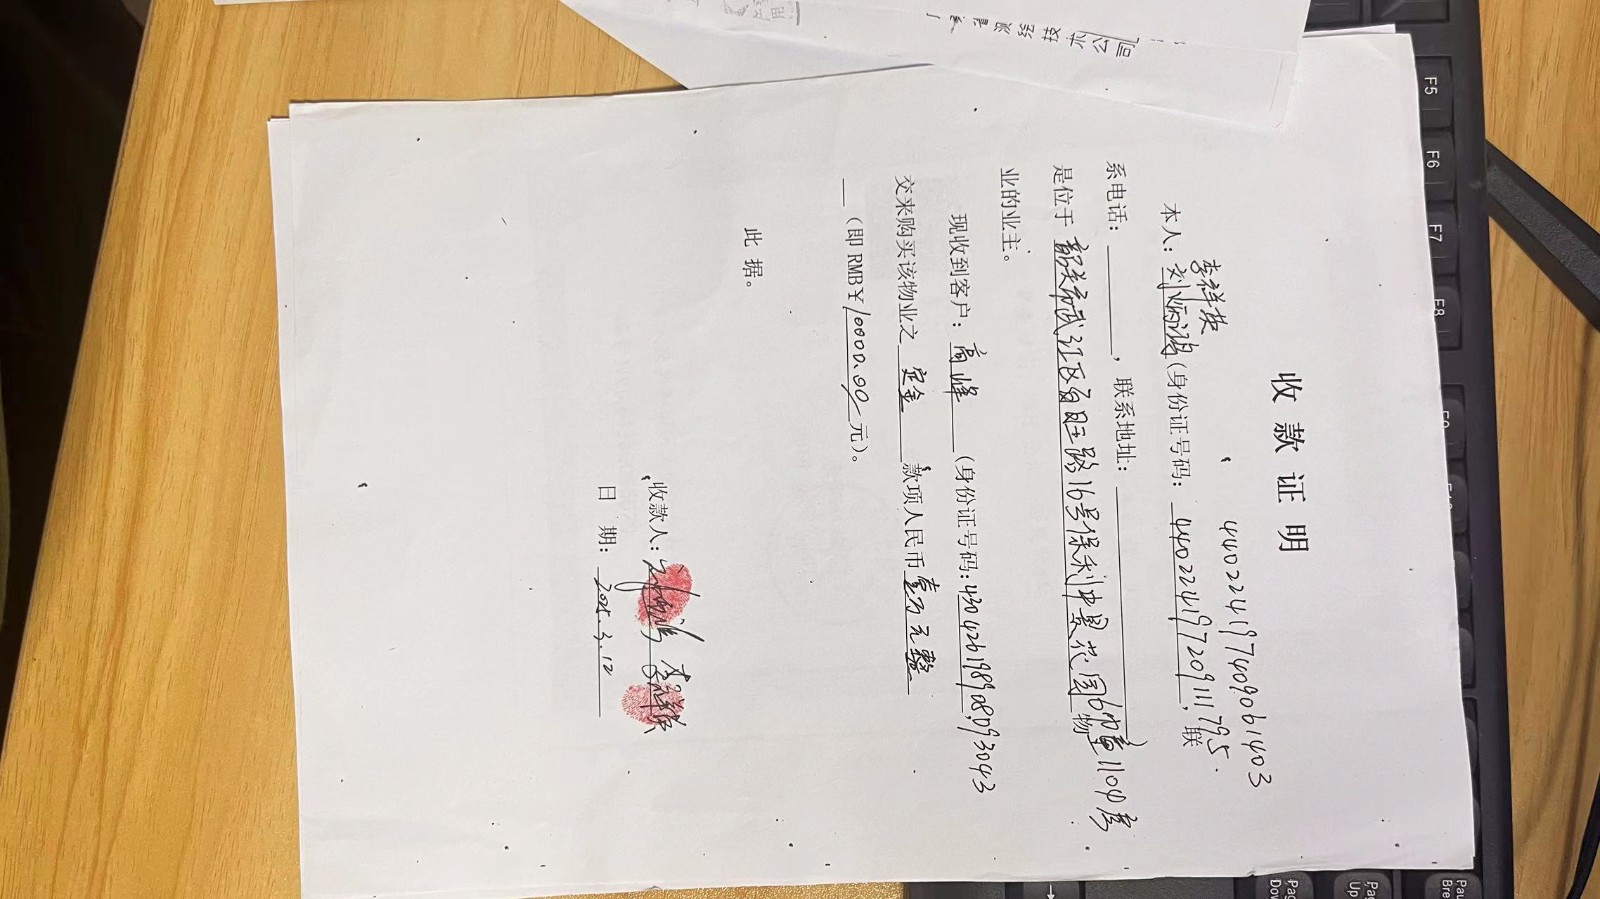 收款证明
李祥英 440224197409061403
本人：刘炳鸿(身份证号码：440224197209111795，联
系电话：，联系地址：)
是位于韶关市武江区百旺路16号保利中景花园6幢1104房物
业的业主。
现收到客户：高峰（身份证号码：430426198908093043
交来购买该物业之定金款项人民币壹万元整
（即RMB￥10000.00元）。
此据。
收款人：刘炳鸿 李祥英
日期：2025.3.12
F5
F6
F7
F8
F9
Page Up